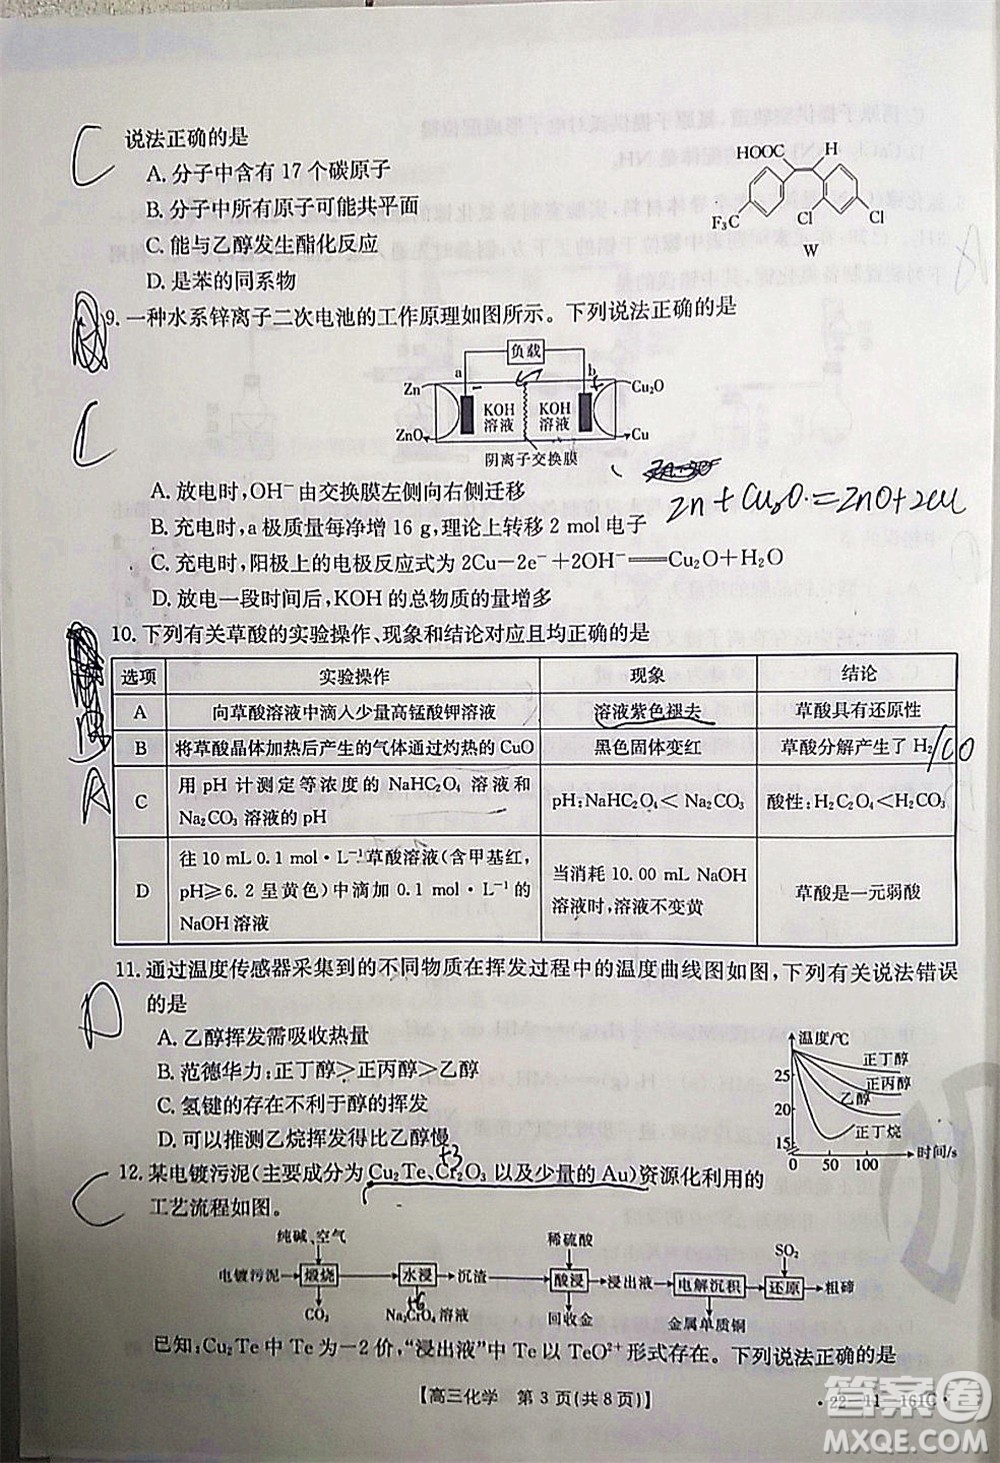 说法正确的是
A. 分子中含有 17 个碳原子
B. 分子中所有原子可能共平面
C. 能与乙醇发生酯化反应
D. 是苯的同系物
HOOC H
F₃C Cl Cl
W
C
9. 一种水系锌离子二次电池的工作原理如图所示。下列说法正确的是
负载
a b
Zn Cu₂O
KOH溶液 KOH溶液
ZnO Cu
阴离子交换膜
C
A. 放电时,OH⁻ 由交换膜左侧向右侧迁移
Zn + Cu₂O = ZnO + 2Cu
B. 充电时,a 极质量每净增 16 g,理论上转移 2 mol 电子
C. 充电时,阳极上的电极反应式为 2Cu−2e⁻+2OH⁻══Cu₂O+H₂O
D. 放电一段时间后,KOH 的总物质的量增多
10. 下列有关草酸的实验操作、现象和结论对应且均正确的是
选项 实验操作 现象 结论
A 向草酸溶液中滴入少量高锰酸钾溶液 溶液紫色褪去 草酸具有还原性
B 将草酸晶体加热后产生的气体通过灼热的 CuO 黑色固体变红 草酸分解产生了 H₂ /CO
C 用 pH 计测定等浓度的 NaHC₂O₄ 溶液和
Na₂CO₃ 溶液的 pH
pH:NaHC₂O₄< Na₂CO₃ 酸性:H₂C₂O₄<H₂CO₃
D 往 10 mL 0.1 mol·L⁻¹草酸溶液(含甲基红,
pH≥6.2 呈黄色)中滴加 0.1 mol·L⁻¹的
NaOH 溶液
当消耗 10.00 mL NaOH
溶液时,溶液不变黄
草酸是一元弱酸
A
11. 通过温度传感器采集到的不同物质在挥发过程中的温度曲线图如图,下列有关说法错误
的是
A. 乙醇挥发需吸收热量
B. 范德华力:正丁醇>正丙醇>乙醇
C. 氢键的存在不利于醇的挥发
D. 可以推测乙烷挥发得比乙醇慢
温度/℃
25
20
15
0 50 100 时间/s
正丁醇
正丙醇
乙醇
正丁烷
D
12. 某电镀污泥(主要成分为 Cu₂Te、Cr₂O₃ 以及少量的 Au)资源化利用的
+3
工艺流程如图。
C
纯碱、空气 稀硫酸 SO₂
电镀污泥 煅烧 水浸 沉渣 酸浸 浸出液 电解沉积 还原 粗碲
CO₂ Na₂CrO₄ 溶液 回收金 金属单质铜
+6
已知:Cu₂Te 中 Te 为−2 价,“浸出液”中 Te 以 TeO²⁺ 形式存在。下列说法正确的是
【高三化学 第 3 页(共 8 页)】
·22−11−161C·
答案圈
MXQE.COM